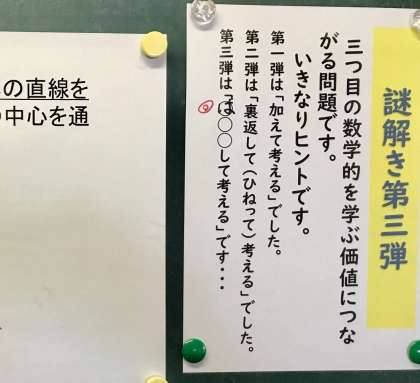 謎解き第三弾
三つ目の数学的を学ぶ価値につな
がる問題です。
いきなりヒントです。
第一弾は「加えて考える」でした。
第二弾は「裏返して(ひねって)考える」でした。
第三弾は「は○○して考える」です・・・
の直線を
の中心を通